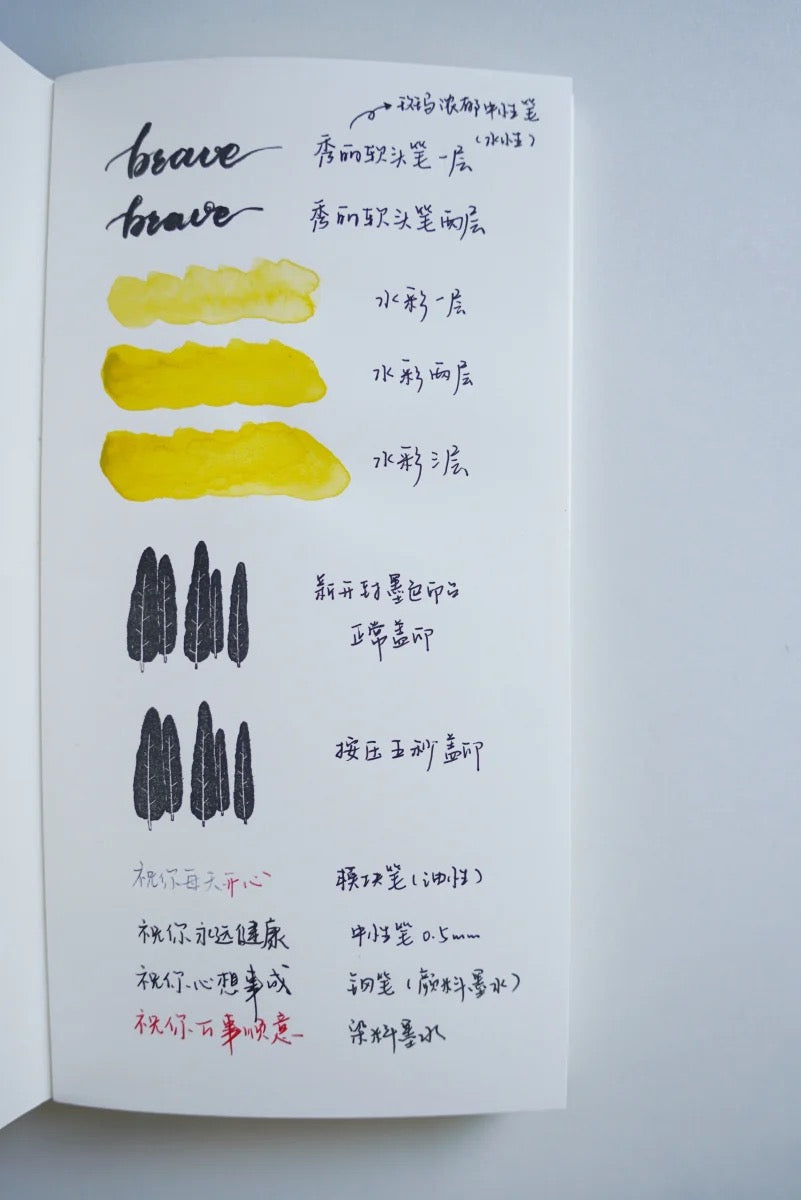 斑玛浓郁中性笔
(水性)
brave 秀丽软头笔一层
brave 秀丽软头笔两层
水彩一层
水彩两层
水彩三层
新开封墨色印台
正常盖印
按压五秒盖印
祝你每天开心 模块笔(油性)
祝你永远健康 中性笔0.5mm
祝你心想事成 钢笔(颜料墨水)
祝你万事顺意 染料墨水